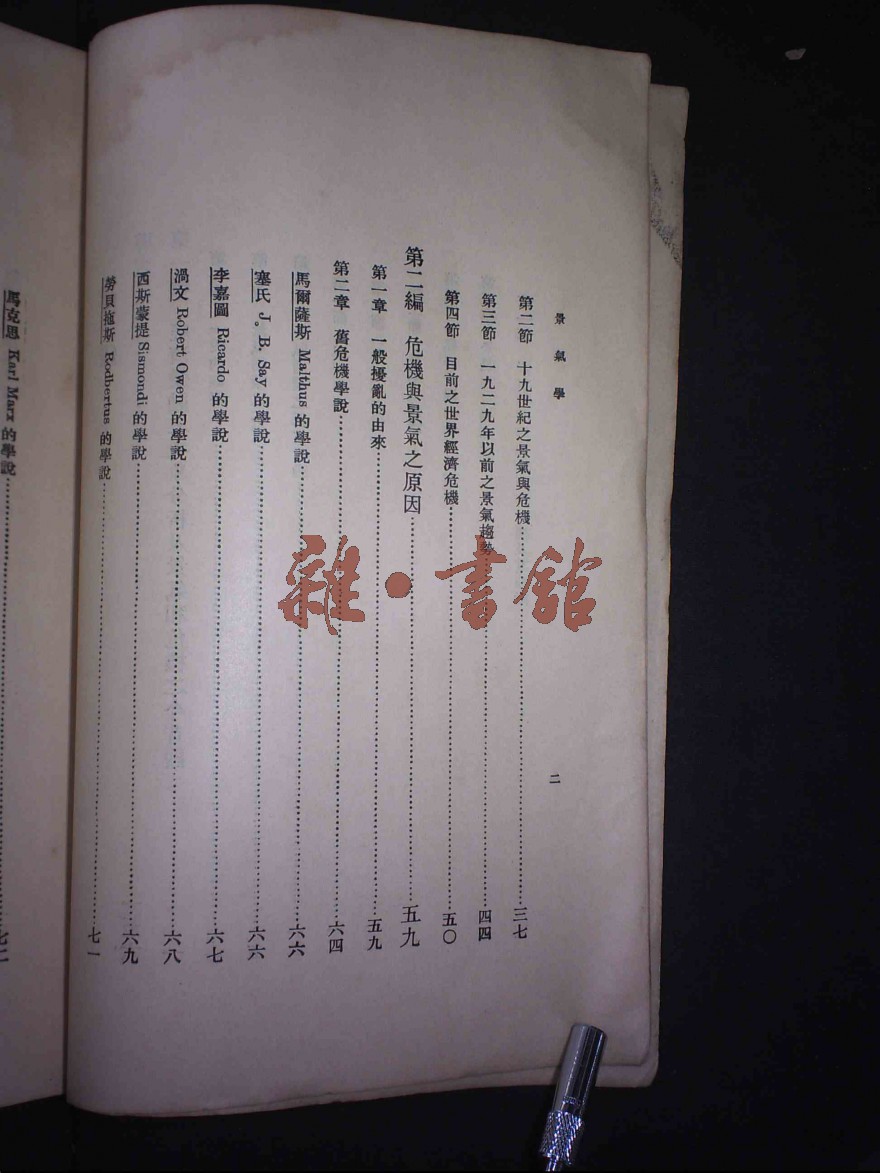 景氣學
二
第二節 十九世紀之景氣與危機……三七
第三節 一九二九年以前之景氣趨勢……四四
第四節 目前之世界經濟危機……五〇
第二編 危機與景氣之原因……五九
第一章 一般擾亂的由來……五九
第二章 舊危機學說……六四
馬爾薩斯 Malthus 的學說……六六
塞氏 J. B. Say 的學說……六六
李嘉圖 Ricardo 的學說……六七
渦文 Robert Owen 的學說……六八
西斯蒙提 Sismondi 的學說……六九
勞貝拖斯 Rodbertus 的學說……七一
馬克思 Karl Marx 的學說……七二
雜·書館